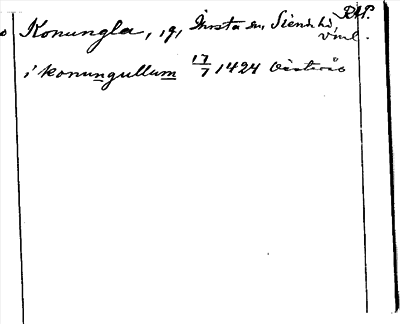 RAP.
Konungla, gd, Irsta sn, Siende hd, Vml.
i konungullum 17/7 1424 Västerås